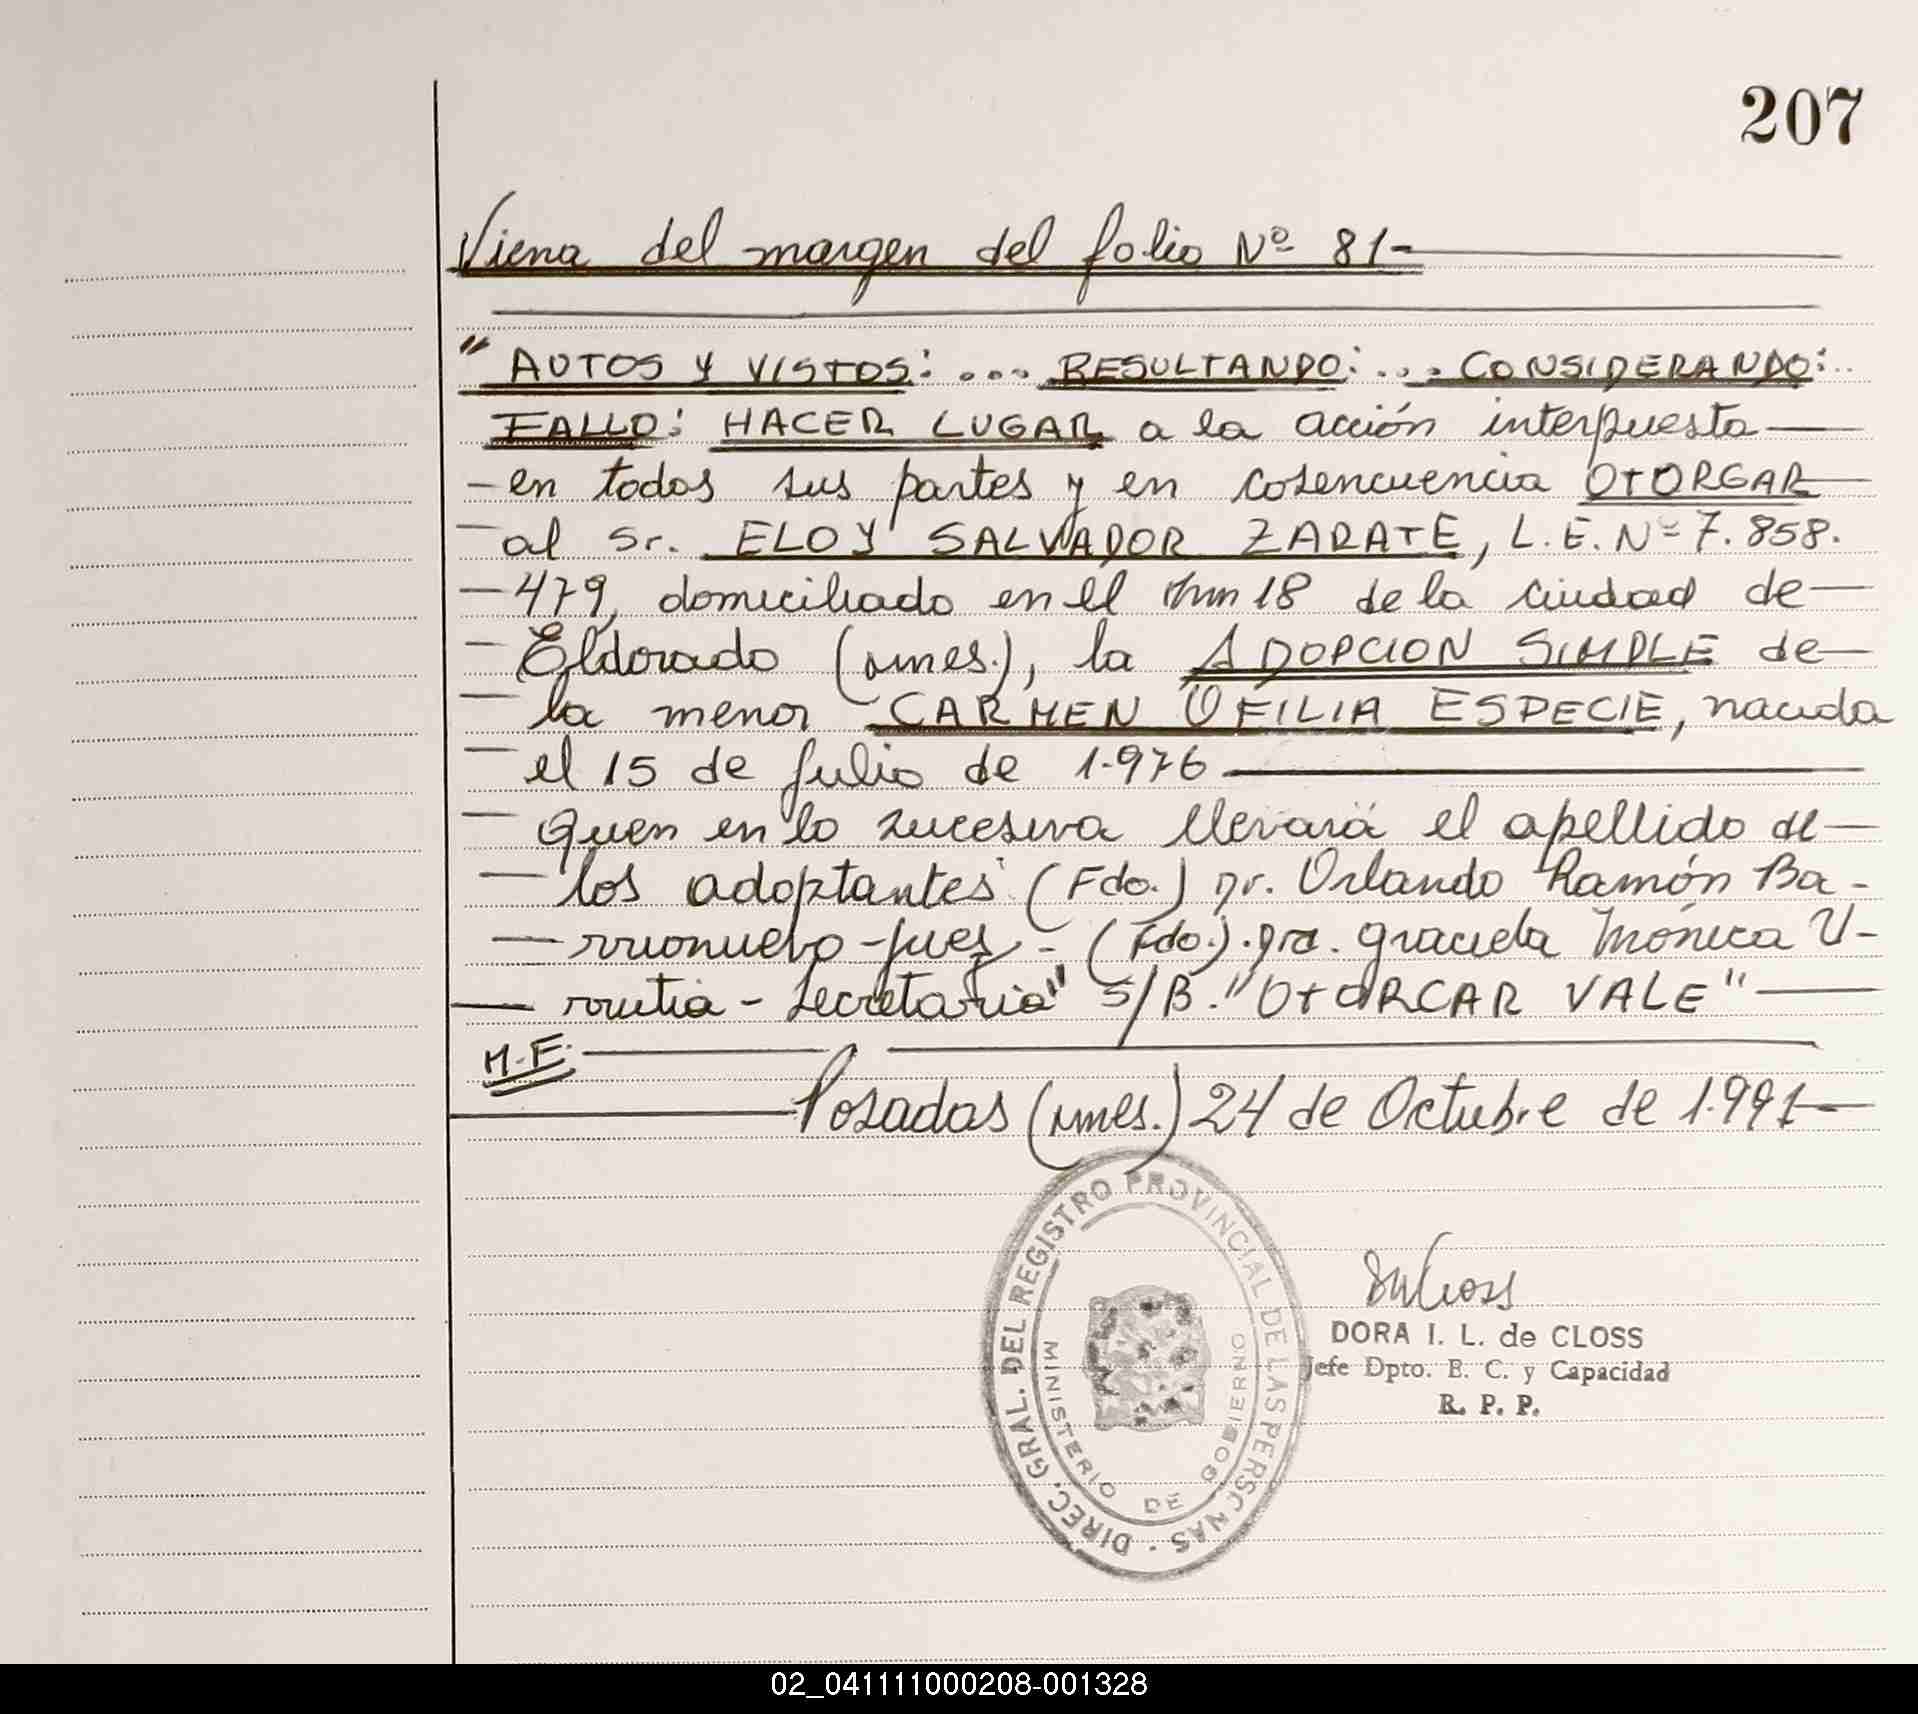 207
Viene del margen del folio Nº 81-
"AUTOS Y VISTOS:... RESULTANDO:... CONSIDERANDO:..
FALLO: HACER LUGAR a la acción interpuesta
en todas sus partes y en cosencuencia OTORGAR
al Sr. ELOY SALVADOR ZARATE, L.E. Nº 7.858.
479, domiciliado en el Km 18 de la ciudad de
Eldorado (Mnes.), la ADOPCION SIMPLE de
la menor CARMEN OFILIA ESPECIE, nacida
el 15 de Julio de 1.976
Quen en lo sucesivo llevará el apellido de
los adoptantes (Fdo.) Dr. Orlando Ramón Ba-
rrionuevo-Juez- (Fdo.). Dra. Graciela Mónica U-
rrutia - Secretaria" S/B. "OTORGAR VALE"
M.E.
Posadas (Mnes.) 24 de Octubre de 1.991
DIREC. GRAL. DEL REGISTRO PROVINCIAL DE LAS PERSONAS
MINISTERIO DE GOBIERNO
DORA I. L. de CLOSS
Jefe Dpto. E. C. y Capacidad
R. P. P.
02_041111000208-001328